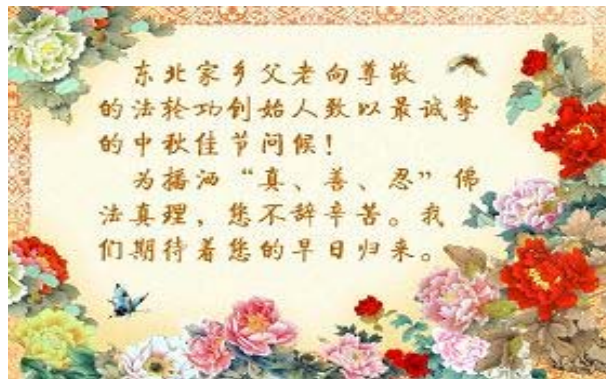 东北家乡父老向尊敬
的法轮功创始人致以最诚挚
的中秋佳节问候！
为播洒“真、善、忍”佛
法真理，您不辞辛苦。我
们期待着您的早日归来。